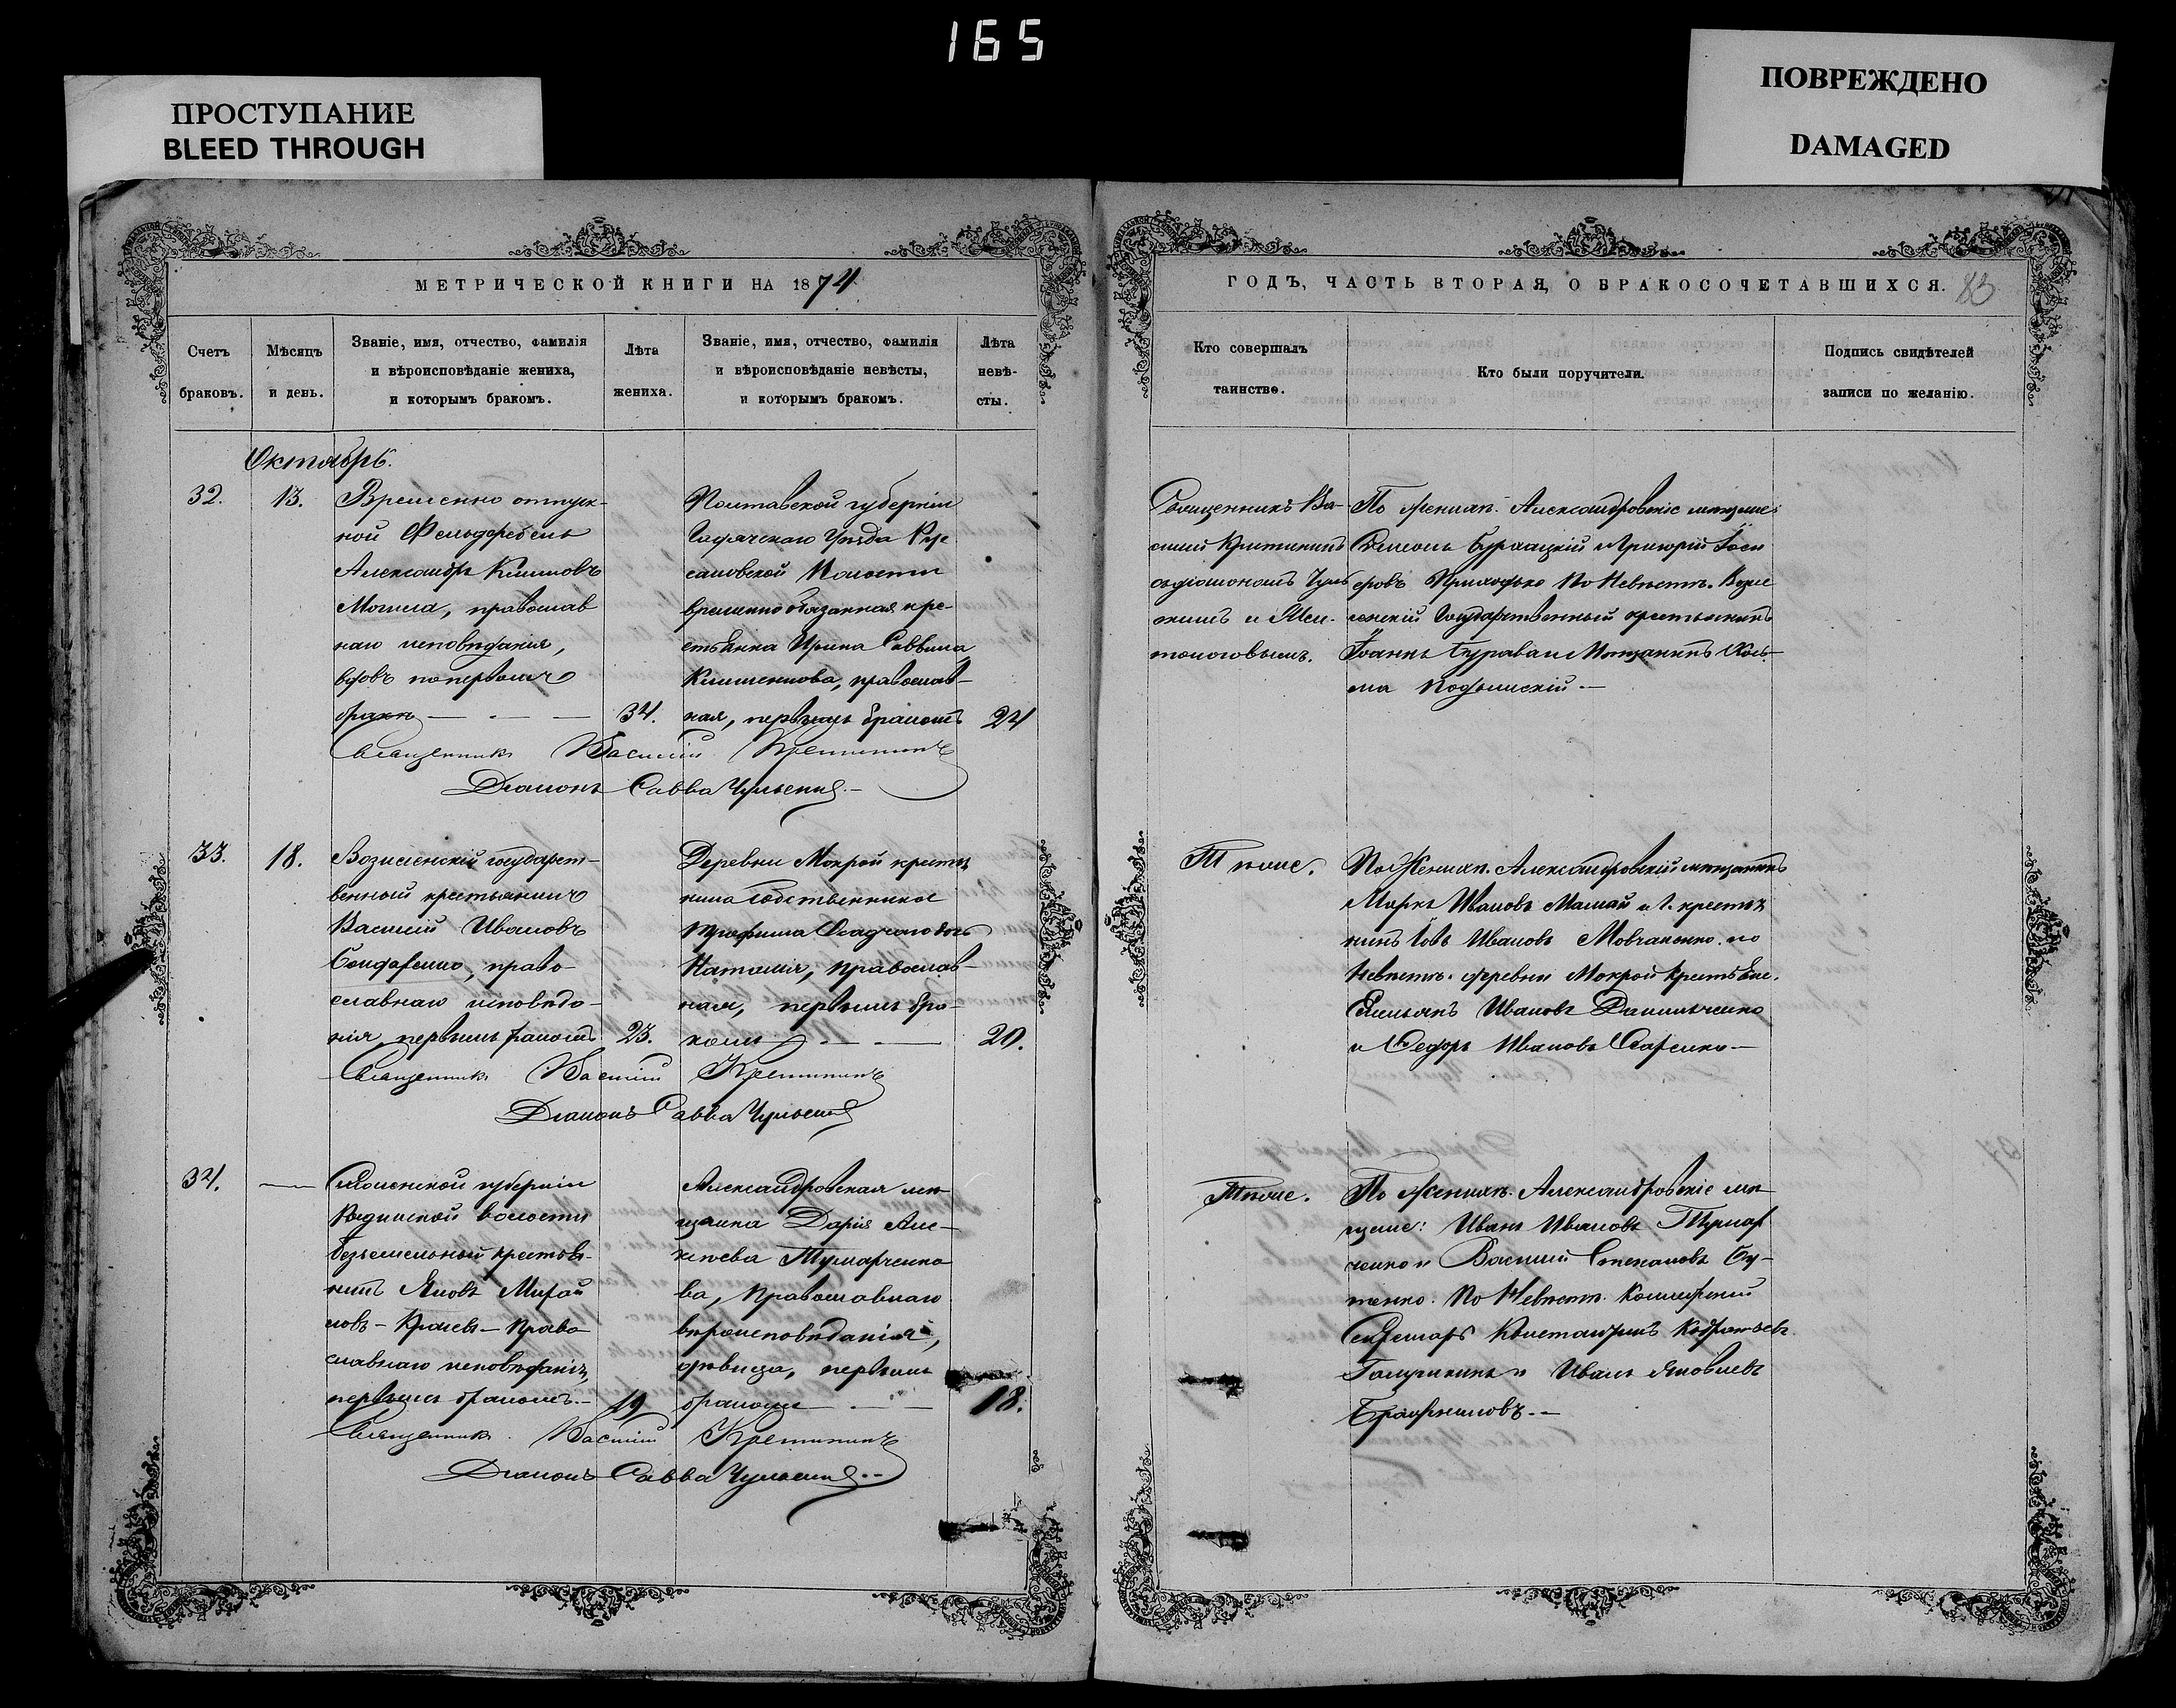 165
ПРОСТУПАНИЕ
BLEED THROUGH
ПОВРЕЖДЕНО
DAMAGED
МЕТРИЧЕСКОЙ КНИГИ НА 1874
Счетъ браковъ.
Мѣсяцъ и день.
Званіе, имя, отчество, фамилія
и вѣроисповѣданіе жениха,
и которымъ бракомъ.
Лѣта жениха.
Званіе, имя, отчество, фамилія
и вѣроисповѣданіе невѣсты,
и которымъ бракомъ.
Лѣта невѣ-
сты.
Октябрь.
32. 13.
Временно отпуск-
ной Фельдфебель
Александръ Климовъ
Могила, православ
наго исповѣданія,
вдовъ по первомъ
бракѣ 34.
Полтавской губерніи
Гадячскаго Уѣзда Ру
сановской Волости
временно обязанная кре-
стьянка Ирина Саввина
Клименкова, православ-
ная, первымъ бракомъ 24
Священникъ Василій
Діаконъ Савва
33. 18.
Вознесенскій государст-
венный крестьянинъ
Василій Ивановъ
Бондаренко, право-
славнаго исповѣда-
нія, первымъ бракомъ 23.
Деревни Мокрой крестья
нина собственника
Трофима дочь
Наталія, православ-
ная, первымъ бра-
комъ 20.
Священникъ Василій
Діаконъ Савва
34.
Смоленской губерніи
волости
безземельный крестья-
нинъ Яковъ
новъ - Право
славнаго исповѣданія,
первымъ бракомъ.- 19
Александровская мѣ
щанка Дарія Але-
ксѣева Тумарченко
ва, православнаго
вѣроисповѣданія,
дѣвица, первымъ
бракомъ 18.
Священникъ Василій
Діаконъ Савва
ГОДЪ, ЧАСТЬ ВТОРАЯ, О БРАКОСОЧЕТАВШИХСЯ. 83
Кто совершалъ
таинство.
Кто были поручители.
Подпись свидѣтелей
записи по желанію.
Священникъ Ва-
силій
съ діакономъ
и
По женихѣ. Александровскіе мѣщане:
и Григорій
Приходько По Невѣстѣ. Возне
сенскій Государственный крестьянинъ
Іоаннъ Бурава и Мѣщанинъ Кось-
ма
Тѣже.
По Женихѣ. Александровскій мѣщанинъ
Маркъ Ивановъ Мамай и крестья
нинъ Ивановъ Мовчаненко. по
Невѣстѣ. деревни Мокрой крестьяне.
Емельянъ Ивановъ Данильченко
и Федоръ Ивановъ
Тѣже.
По Женихѣ. Александровскіе мѣ
щане: Иванъ Ивановъ Тумар
ченко и Василій Степановъ Бу-
тенко. По Невѣстѣ.
Константинъ
и Иванъ Яковлевъ
Бражниковъ.-